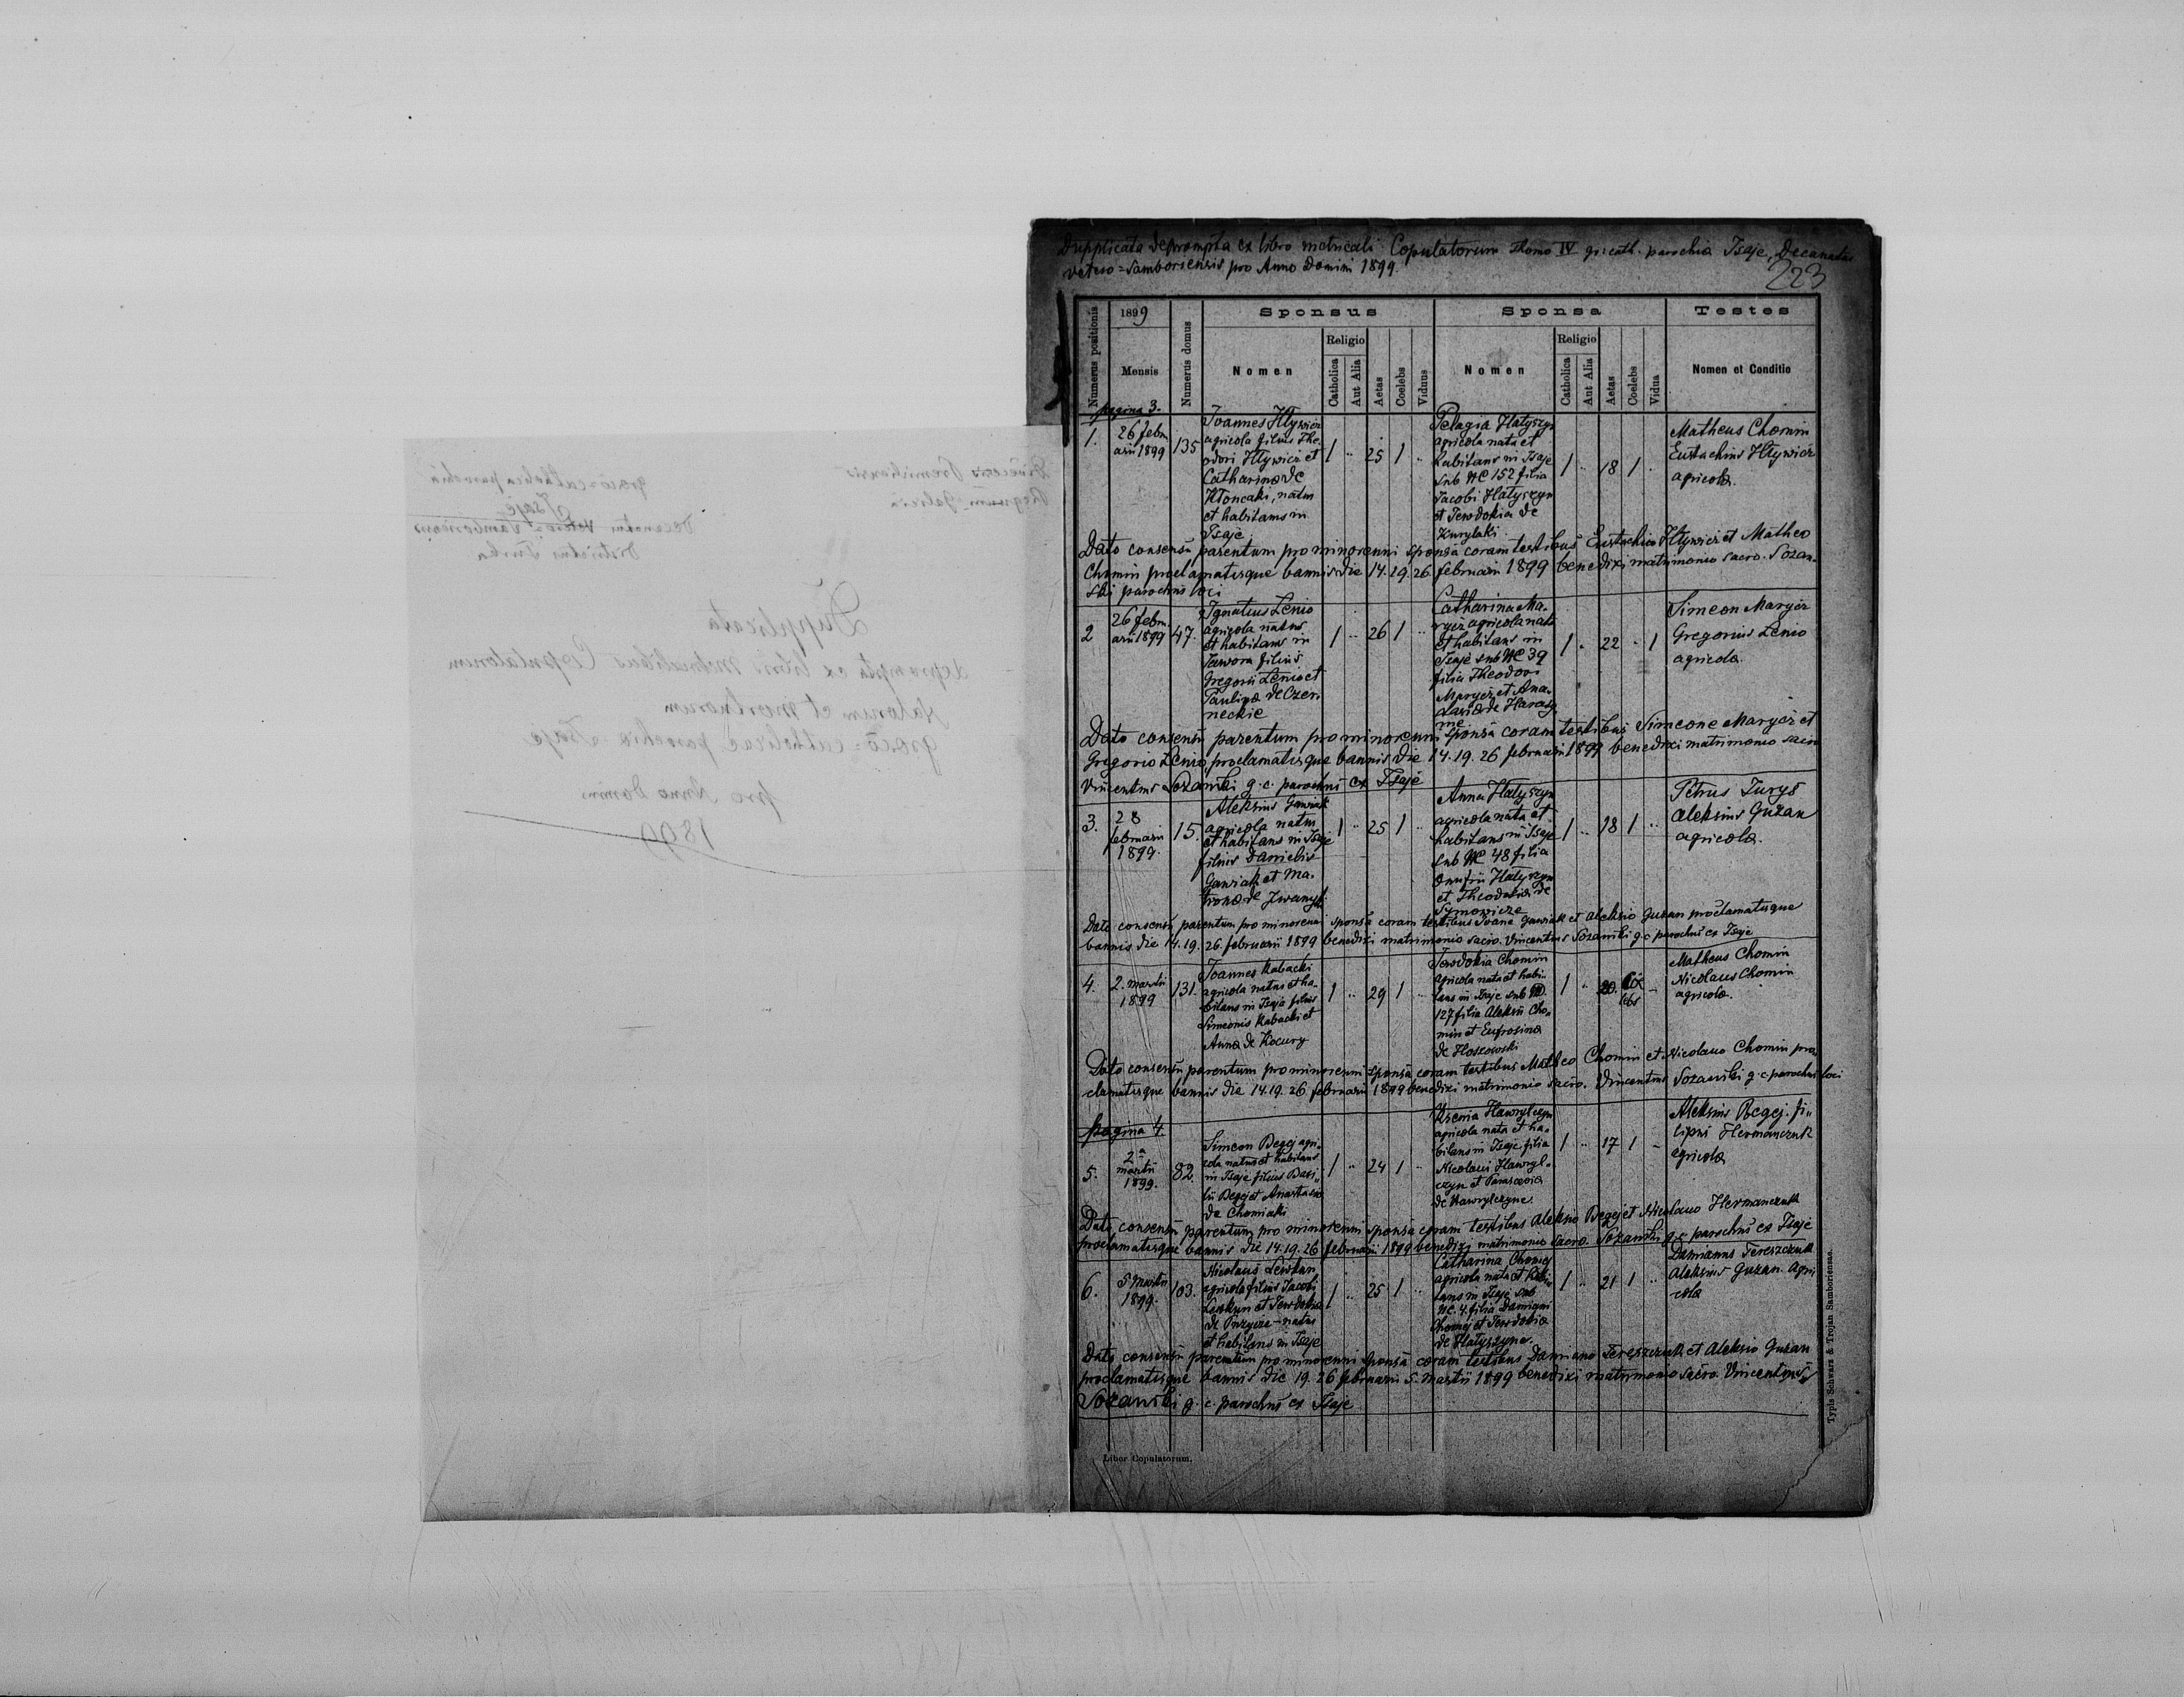 Dupplicata deprompta ex libro metricali Copulatorum Thomo IV gr. cath. parochia Isaje, Decanatus
vetero=Samboriensis pro Anno Domini 1899.
223
Numerus positionis
1899
Mensis
Numerus domus
Sponsus
Nomen
Religio
Catholica
Aut Alia
Aetas
Coelebs
Viduus
Sponsa
Nomen
Religio
Catholica
Aut Alia
Aetas
Coelebs
Vidua
Testes
Nomen et Conditio
pagina 3.
1.
26 febru
arii 1899
135
Joannes Hlywicz
agricola filius The-
odori Hlywicz et
Catharina de
Kloncaki, natus
et habitans in
Isaje
1 .. 25 1 ..
Pelagia Hatyszyn
agricola nata et
habitans in Isaje
sub NC 152 filia
Jacobi Hatyszyn
et Tewdokia de
Kurylaki
1 .. 18 1 ..
Matheus Chomin
Eustachius Hlywicz
agricola.
Dato consensu parentum pro minorenni sponsa coram testibus Eustachio Hlywicz et Matheo
Chomin proclamatisque bannis die 14. 19. 26 februarii 1899 benedixi matrimonio sacro. Sozan-
ski parochus loci
2
26 febru
arii 1899
47.
Ignatius Lenio
agricola natus
et habitans in
Jawora filius
Gregorii Lenio et
Paulina de Czer
neckie
1 .. 26 1 ..
Catharina Ma-
rycz agricola nata
et habitans in
Isaje sub NC 39
filia Theodori
Marycz et Ana-
stasia de Harasy
me
1 .. 22 - 1
Simeon Marycz
Gregorius Lenio
agricola.
Dato consensu parentum pro minorenni sponsa coram testibus Simeone Marycz et
Gregorio Lenio proclamatisque bannis die 14. 19. 26 februarii 1899 benedixi matrimonio sacro
Vincentius Sozanski g. c. parochus ex Isaje
3.
28
februarii
1899.
15.
Aleksius Gawiak
agricola natus
et habitans in Isaje
filius Danielis
Gawiak et Ma-
trona de Iwanyk
1 .. 25 1 ..
Anna Hatyszyn
agricola nata et
habitans in Isaje
sub NC 48 filia
Onufrii Hatyszyn
et Theodokia de
Symowicze
1 .. 18 1 ..
Petrus Jurys
Aleksius Guzan
agricola.
Dato consensu parentum pro minorenni sponsa coram testibus Ioane Gawiak et Aleksio Guzan proclamatisque
bannis die 14. 19. 26. februarii 1899 benedixi matrimonio sacro. Vincentius Sozanski g. c. parochus ex Isaje
4.
2. martii
1899
131.
Joannes Kabacki
agricola natus et ha-
bitans in Isaje filius
Simeonis Kabacki et
Anna de Kocury
1 .. 29 1 ..
Tewdokia Chomin
agricola nata et habi-
tans in Isaje sub NC
127 filia Aleksii Cho-
min et Eufrosina
de Hoszowski
1 .. 20. -
Matheus Chomin
Nicolaus Chomin
agricola.
Dato consensu parentum pro minorenni sponsa coram testibus Matheo Chomin et Nicolao Chomin pro
clamatisque bannis die 14. 19. 26 februarii 1899 benedixi matrimonio sacro. Vincentius Sozanski g. c. parochus loci
pagina 4
5.
2a
martii
1899.
82.
Simeon Begej agri-
cola natus et habitans
in Isaje filius Basi-
lii Begej et Anastasia
de Chomiaki
1 .. 24 1 ..
Ksenia Hawrylczyn
agricola nata et ha-
bitans in Isaje filia
Nicolai Hawryl-
czyn et Parascevia
de Hawrylczyne
1 .. 17 1 -
Aleksius Begej. fi-
lipus Hermanczuk
agricola
Dato consensu parentum pro minorenni sponsa coram testibus Aleksio Begej et Nicolao Hermanczuk
proclamatisque bannis die 14. 19. 26 februarii 1899 benedixi matrimonio sacro. Sozanski g. c. parochus ex Isaje
6.
5 martii
1899.
103.
Nicolaus Lewkun
agricola filius Jacobi
Lewkun et Tewdokia
de Puzycze - natus
et habitans in Isaje
1 .. 25 1 ..
Catharina Chomej
agricola nata et habi
tans in Isaje sub
NC. 4. filia Damiani
Chomej et Tewdokia
de Hatyszyne.
1 .. 21 1 ..
Damianus Tereszczuk
Aleksius Guzan. Agri
cola
Dato consensu parentum pro minorenni sponsa coram testibus Damiano Tereszczuk et Aleksio Guzan
proclamatisque bannis die 19. 26 februarii 5. martii 1899 benedixi matrimonio sacro. Vincentius
Sozanski g. c. parochus ex Isaje
Liber Copulatorum.
Typis Schwarz & Trojan Samboriensae.
Dioecesis Premisliensis
Regnum Galicia
graeco=catholica parochia
Isaje
Decanatus vetero=Samboriensis
Districtus Turka
Dupplicata
deprompta ex libris metricalibus Copulatorum
Natorum et Mortuorum
graeco=catholicae parochia Isaje
pro Anno Domini
1899